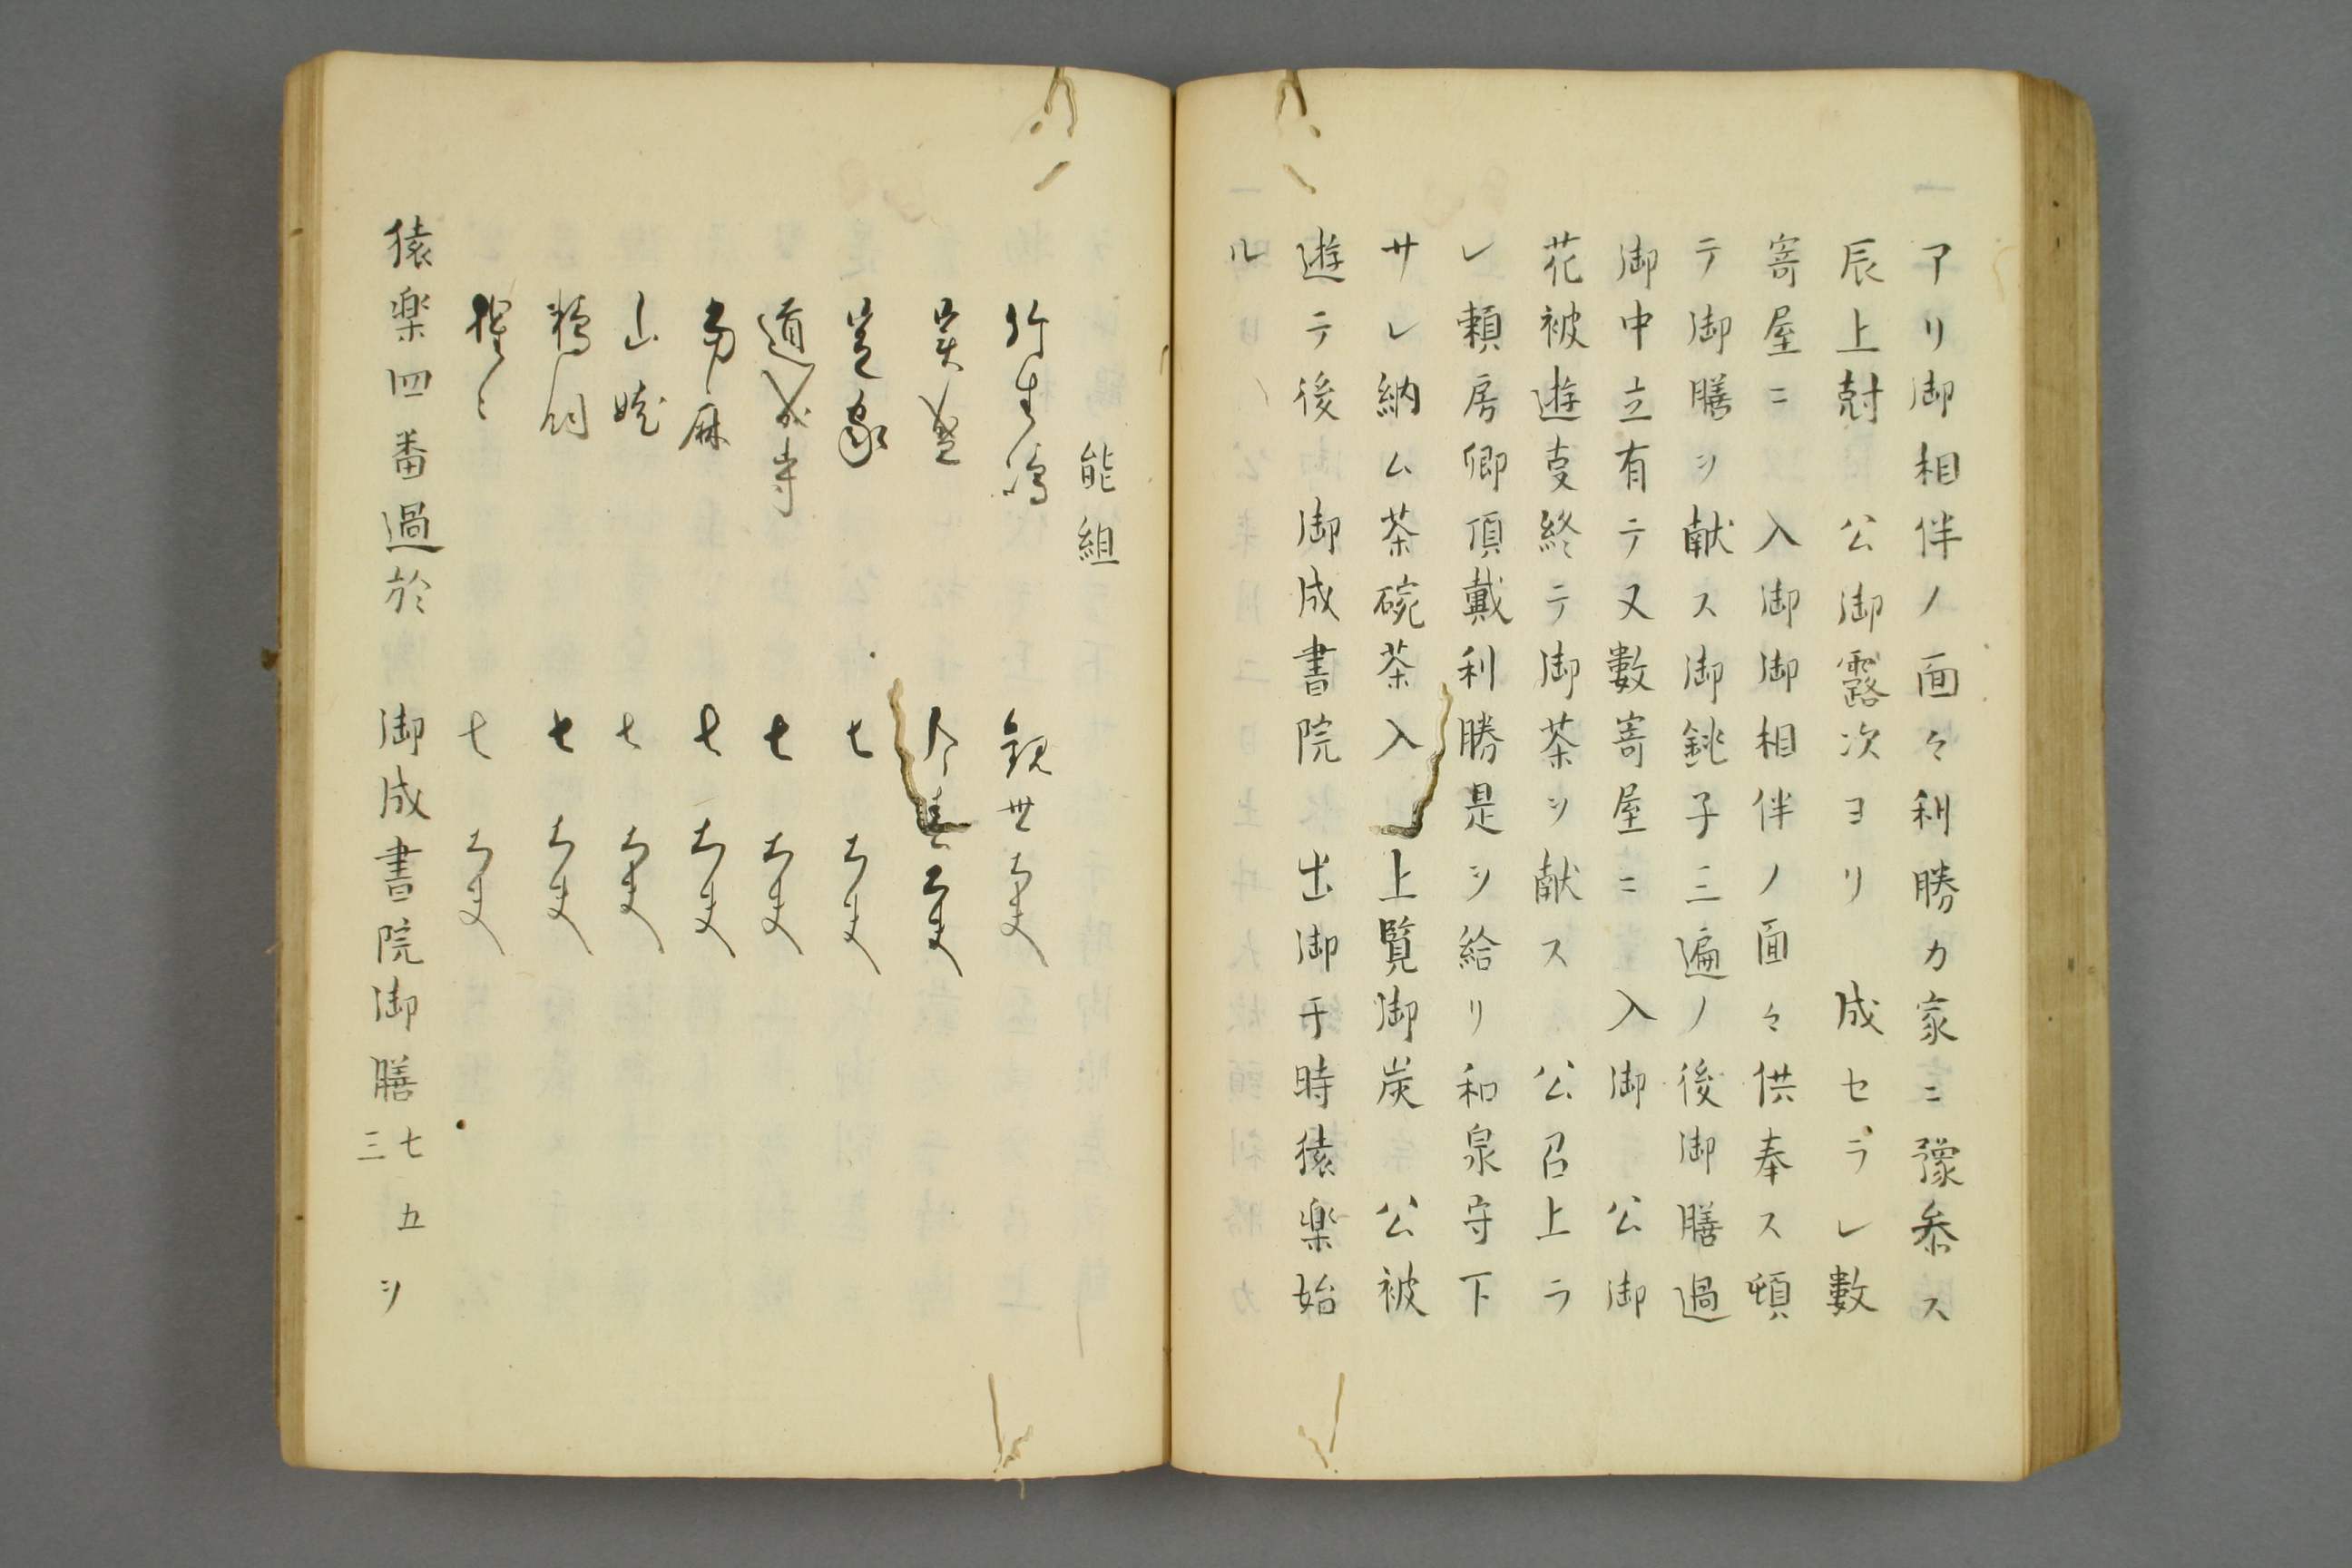 アリ御相伴ノ面々利勝カ家ニ豫参ス
辰上尅　公御露次ヨリ　成セラレ數
寄屋ニ　入御御相伴ノ面々供奉ス頓
テ御膳ヲ献ス御銚子三遍ノ後御膳過
御中立有テ又數寄屋ニ　入御　公御
花被遊叓終テ御茶ヲ献ス　公召上ラ
レ頼房卿頂戴利勝是ヲ給リ和泉守下
サレ納ム茶碗茶入　上覧御炭　公被
遊テ後　御成書院　出御于時猿楽始
ル
能組
竹生嶋　観世大夫
実盛　今春大夫
七大夫
道成寺　七大夫
当麻　七大夫
山姥　七大夫
鵜飼　七大夫
猩々　七大夫
猿楽四番過於　御成書院御膳七五三ヲ